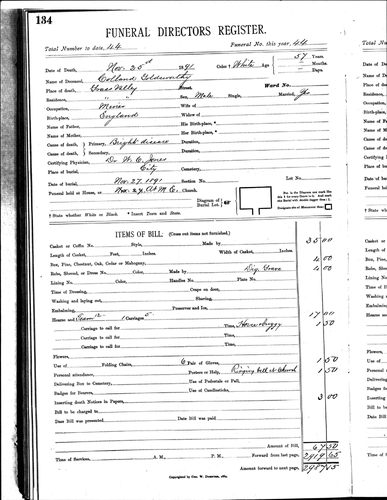 134
FUNERAL DIRECTORS REGISTER.
Total Number to date, 44 Funeral No. this year, 44
Date of Death, Nov. 25th 1891 Color † White Age 57 Years.
Months.
Days.
Name of Deceased, Goldsworthy
Place of death, Grass Valley Street. Ward No.
Residence, " " Sex, Male Single, Married, Yes
Occupation, Miner Wife of
Place of birth, England Widow of
Name of Father, His Birth-place, *
Name of Mother, Her Birth-place, *
Cause of death, Primary, Bright disease Duration,
Cause of death, Secondary, Duration,
Certifying Physician, Dr W. C. Jones
Place of burial, City Cemetery,
Date of burial, Nov. 27. 1891 Section No. Lot No.
Funeral held at House, or Nov. 27. at M. E. Church.
Diagram of Burial Lot.
† State whether White or Black. * Insert Town and State.
ITEMS OF BILL: (Cross out items not furnished.)
Casket or Coffin No. Style, Made by 35 00
Length of Casket, Feet, Inches. Width of Casket, Inches.
Box, Pine, Chestnut, Oak, Cedar or Mahogany. 4 00
Robe, Shroud, or Dress No. Color, Made by Dig. Grave 4 00
Lining No. Color, Handles No. Plate No.
Time of Dressing, Crape on door,
Washing and laying out, Shaving,
Embalming, Preserve and Ice,
Hearse and Team 12 - 1 Carriages, 5 17 00
Carriage to call for Time, Horse buggy 1 50
Carriage to call for Time,
Carriage to call for Time,
Carriage to call for Time,
Flowers,
Use of Folding Chairs, 6 Pair of Gloves, 1 50
Personal attendance, Porters or Help, Ringing bell at Church 1 50
Delivering Box to Cemetery, Use of Pedestals or Pall,
Badges for Bearers, Use of Candlesticks,
Inserting death Notices in Papers, 3 00
Bill to be charged to
Date Bill was presented Date Bill was paid
Amount of Bill, 67 50
Time of Services, A. M., P. M. Forward from last page, 2419 65
Amount forward to next page, 2487 15